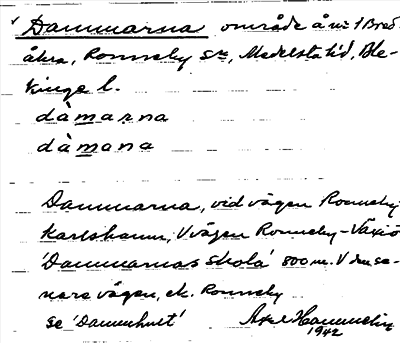 Dammarna område å nr 1 Bred-
åkra, Ronneby sn, Medelsta hd, Ble-
kinge l.
dàmarna
dàmana
Dammarna, vid vägen Ronneby-
Karlshamn, V vägen Ronneby-Växiö
'Dammarnas skola' 800 m. V den se-
nare vägen, ek. Ronneby
se 'Dammhult' Axel Hammelin
1942